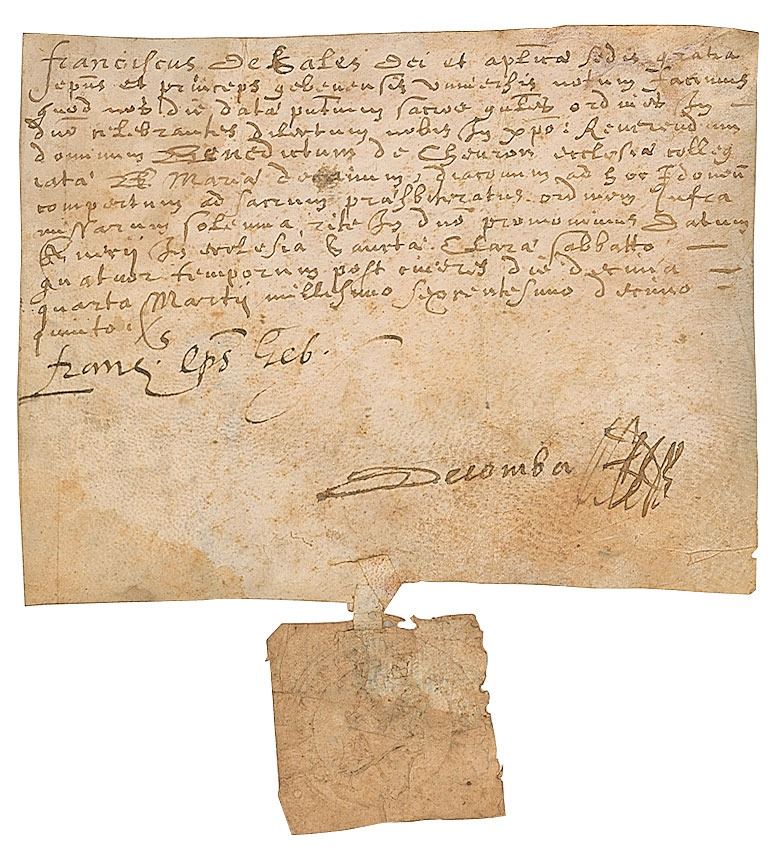 franciscus De Sales dei et aplicæ sedis gratia
epus et princeps gebenensis universis notum facimus
quod nos die data putium sacros gnles ordines In
dno celebrantes dilectum nobis In xpo: Reverendum
dominum Benedictum de Chevron ecclesiæ colleg
iatæ B Mariæ decanum, diaconum ad hoc Idoneu
compertum ad sacrum præsbiteratus ordinem Infra
missarum solemnia rite In dno promovimus Datum
In ecclesia Sanctæ Claræ sabbatto
quatuor temporum post cineres die decima
quarta Martij millesimo sexcentesimo decimo
quinto
franc.s eps Geb.
Decomba